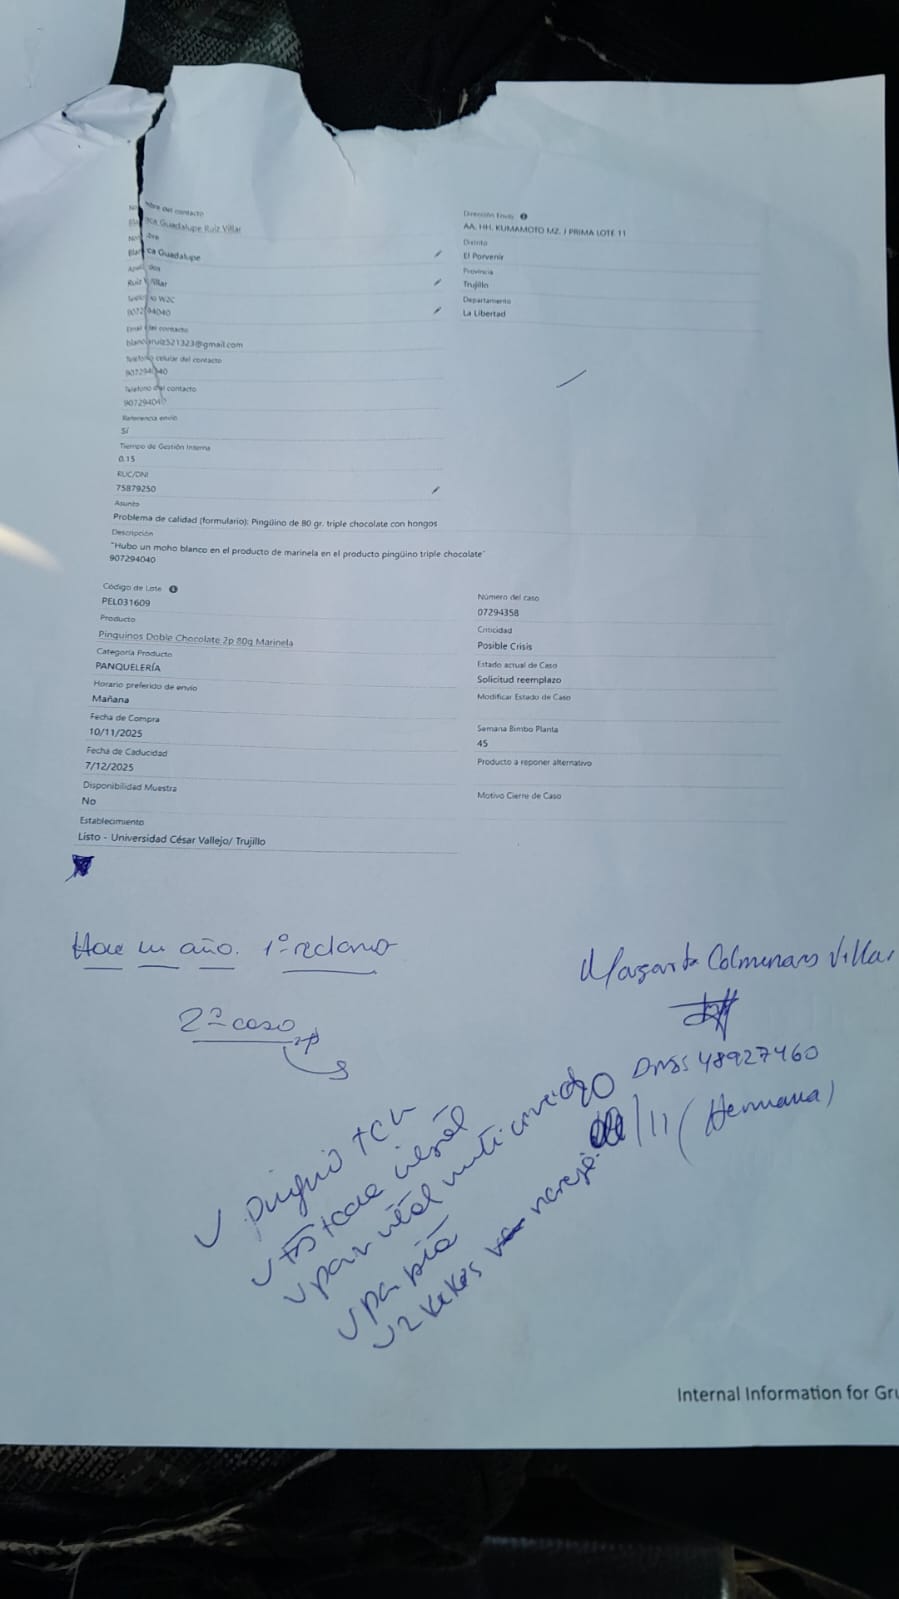 Nombre del contacto
Blanca Guadalupe Ruiz Villar
Nombre
Blanca Guadalupe
Apellidos
Ruiz Villar
Teléfono W2C
907294040
Email del contacto
Teléfono celular del contacto
907294040
Teléfono del contacto
907294040
Referencia envío
Sí
Tiempo de Gestión Interna
0.15
RUC/DNI
75879250
Asunto
Problema de calidad (formulario): Pingüino de 80 gr. triple chocolate con hongos
Descripción
"Hubo un moho blanco en el producto de marinela en el producto pingüino triple chocolate"
907294040
Dirección Envío
AA. HH. KUMAMOTO MZ. J PRIMA LOTE 11
Distrito
El Porvenir
Provincia
Trujillo
Departamento
La Libertad
Código de Lote
PEL031609
Producto
Pinguinos Doble Chocolate 2p 80g Marinela
Categoría Producto
PANQUELERÍA
Horario preferido de envío
Mañana
Fecha de Compra
10/11/2025
Fecha de Caducidad
7/12/2025
Disponibilidad Muestra
No
Establecimiento
Listo - Universidad César Vallejo/ Trujillo
Número del caso
07294358
Criticidad
Posible Crisis
Estado actual de Caso
Solicitud reemplazo
Modificar Estado de Caso
Semana Bimbo Planta
45
Producto a reponer alternativo
Motivo Cierre de Caso
Hace un año. 1º reclamo
2º caso
Margarita Colmenares Villar
48927460
/11 (Hermana)
2 kekes
Internal Information for Gru